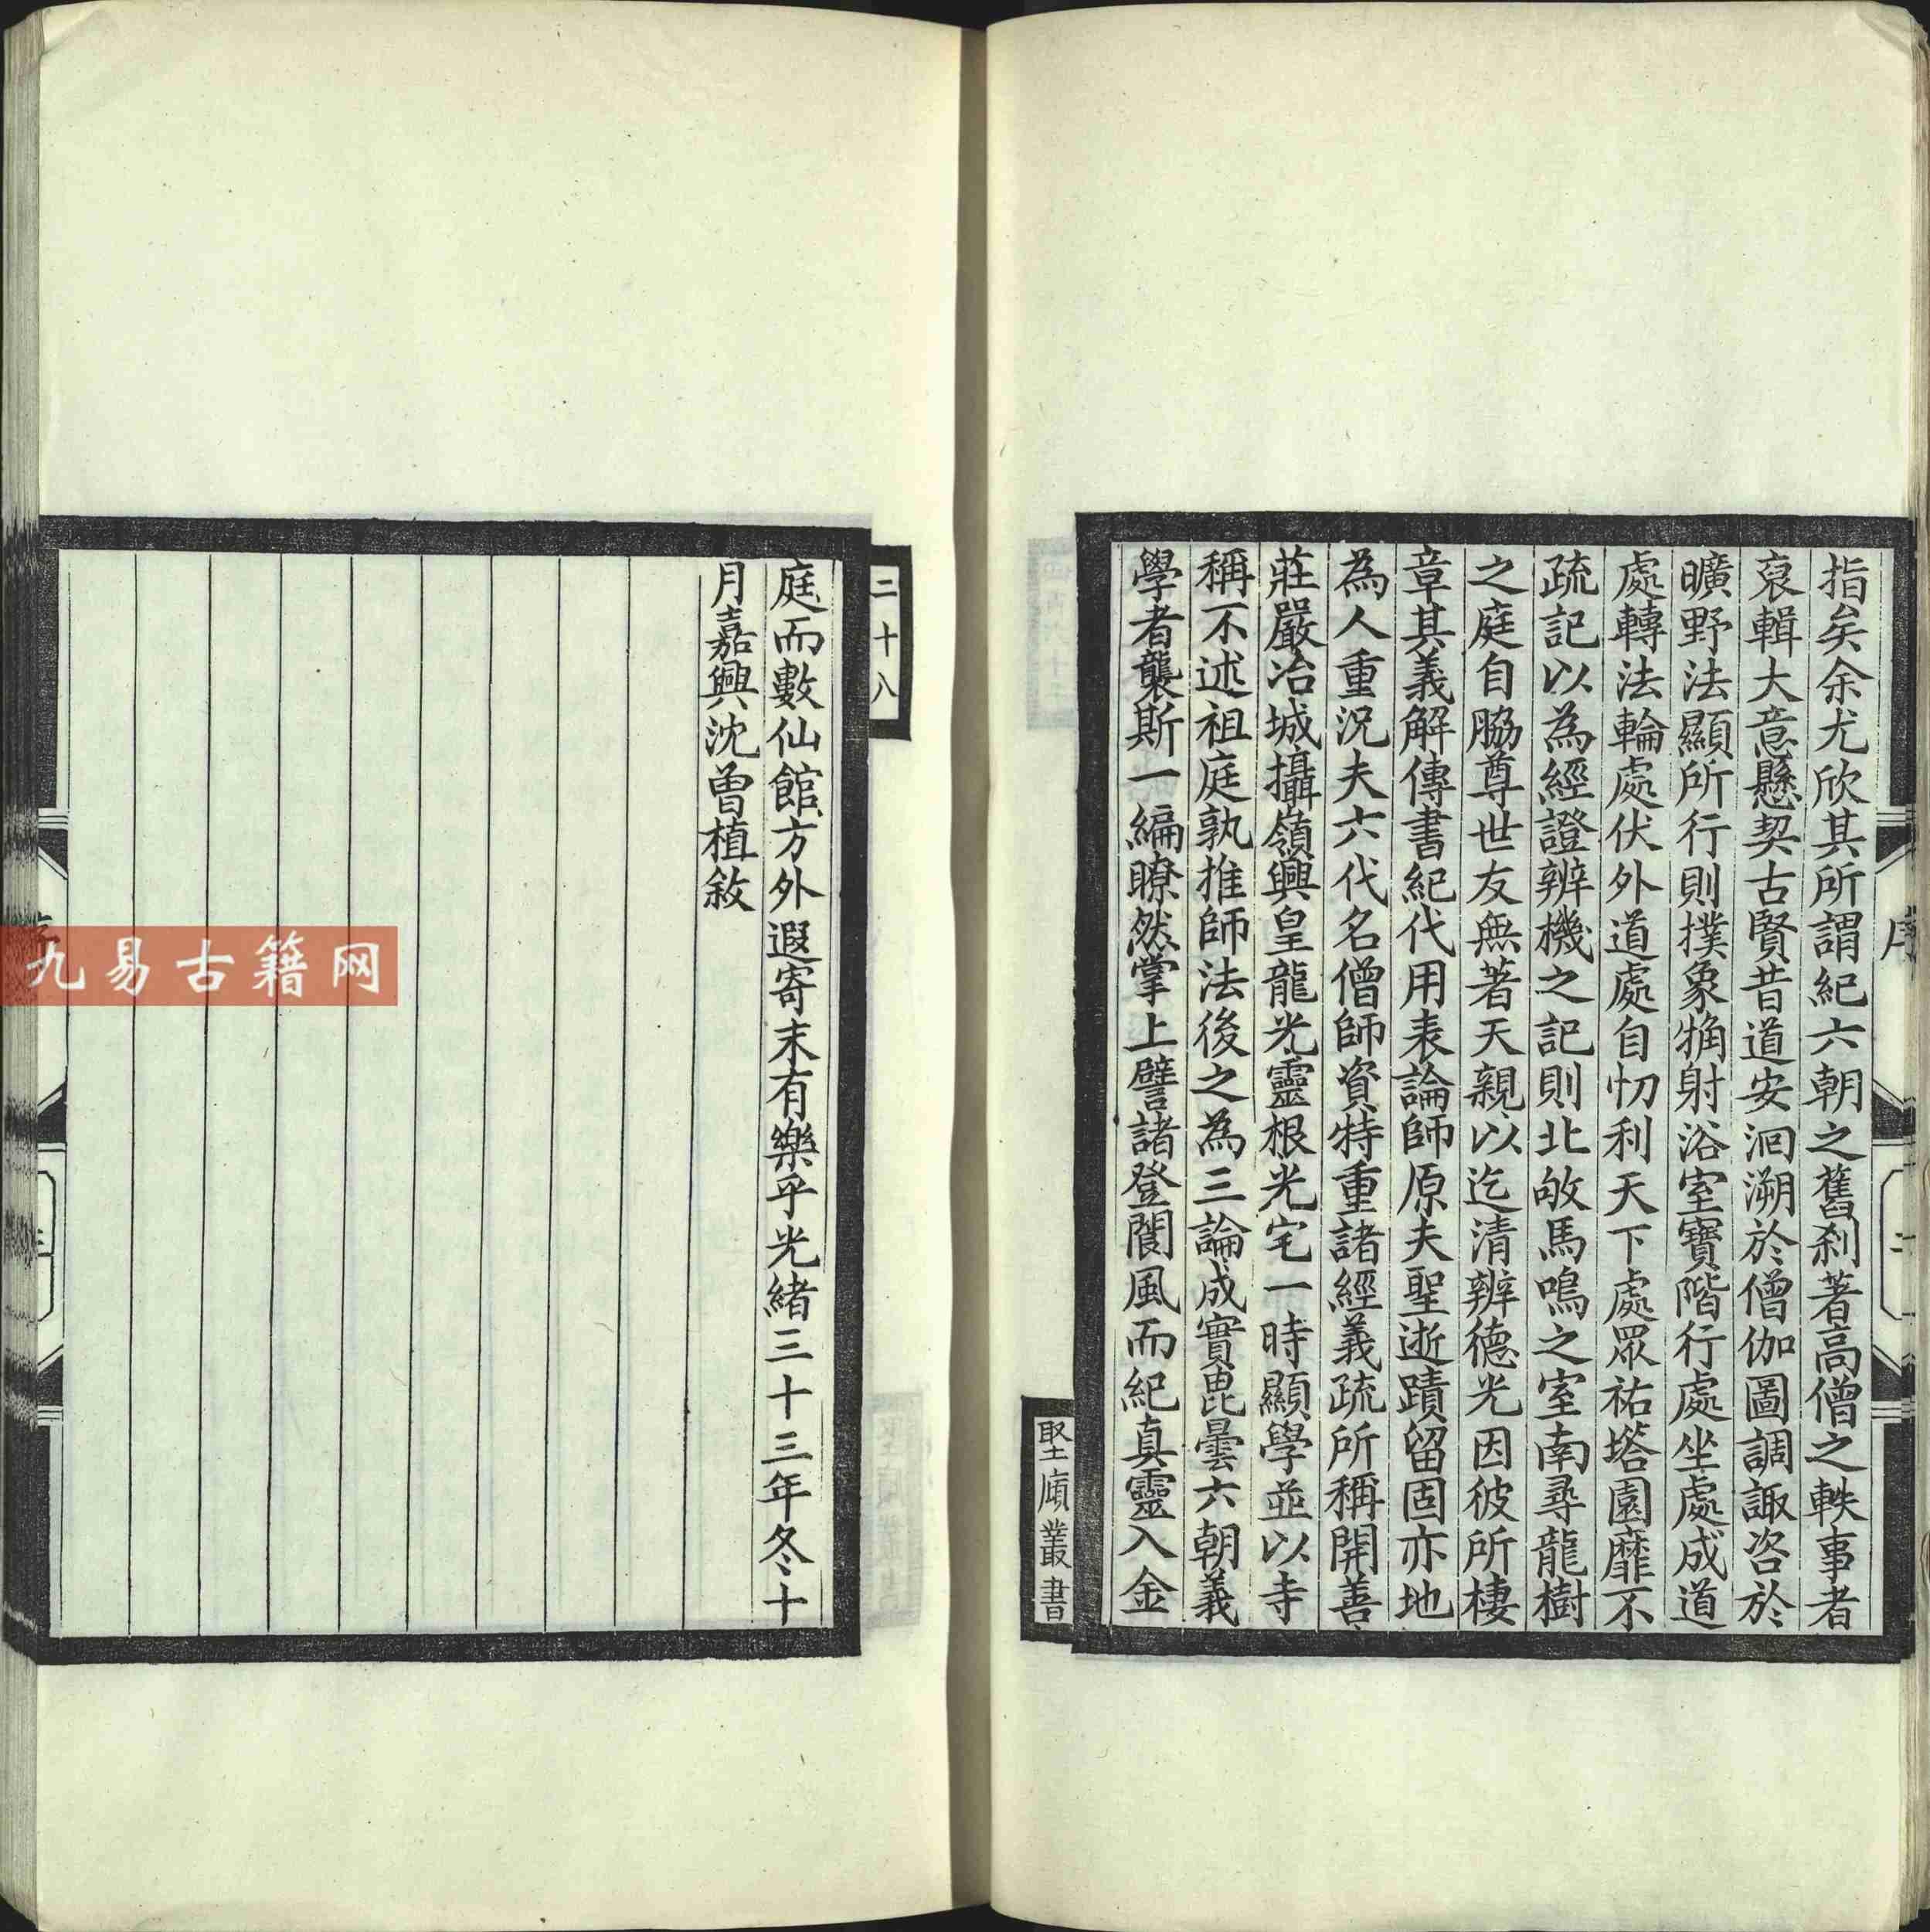 指矣余尤欣其所謂紀六朝之舊刹著高僧之軼事者
裒輯大意懸契古賢昔道安洄溯於僧伽圖調諏咨於
曠野法顯所行則撲象捔射浴室寶階行處坐處成道
處轉法輪處伏外道處自忉利天下處眾祐塔園靡不
疏記以為經證辨機之記則北敂馬鳴之室南尋龍樹
之庭自脇尊世友無著天親以迄清辨德光因彼所棲
章其義解傳書紀代用表論師原夫聖逝蹟留固亦地
為人重況夫六代名僧師資特重諸經義疏所稱開善
莊嚴冶城攝嶺興皇龍光靈根光宅一時顯學並以寺
稱不述祖庭孰推師法後之為三論成實毘曇六朝義
學者襲斯一編瞭然掌上譬諸登閬風而紀真靈入金
序
二
堅廎叢書
二十八
庭而數仙館方外遐寄末有樂乎光緒三十三年冬十
月嘉興沈曾植敘
九易古籍网